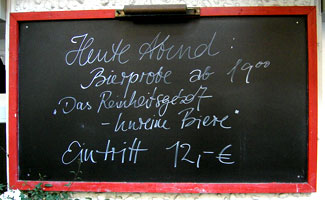 Heute Abend :
Bierprobe ab 19⁰⁰
"Das Reinheitsgebot
- Unreine Biere"
Eintritt 12,-€